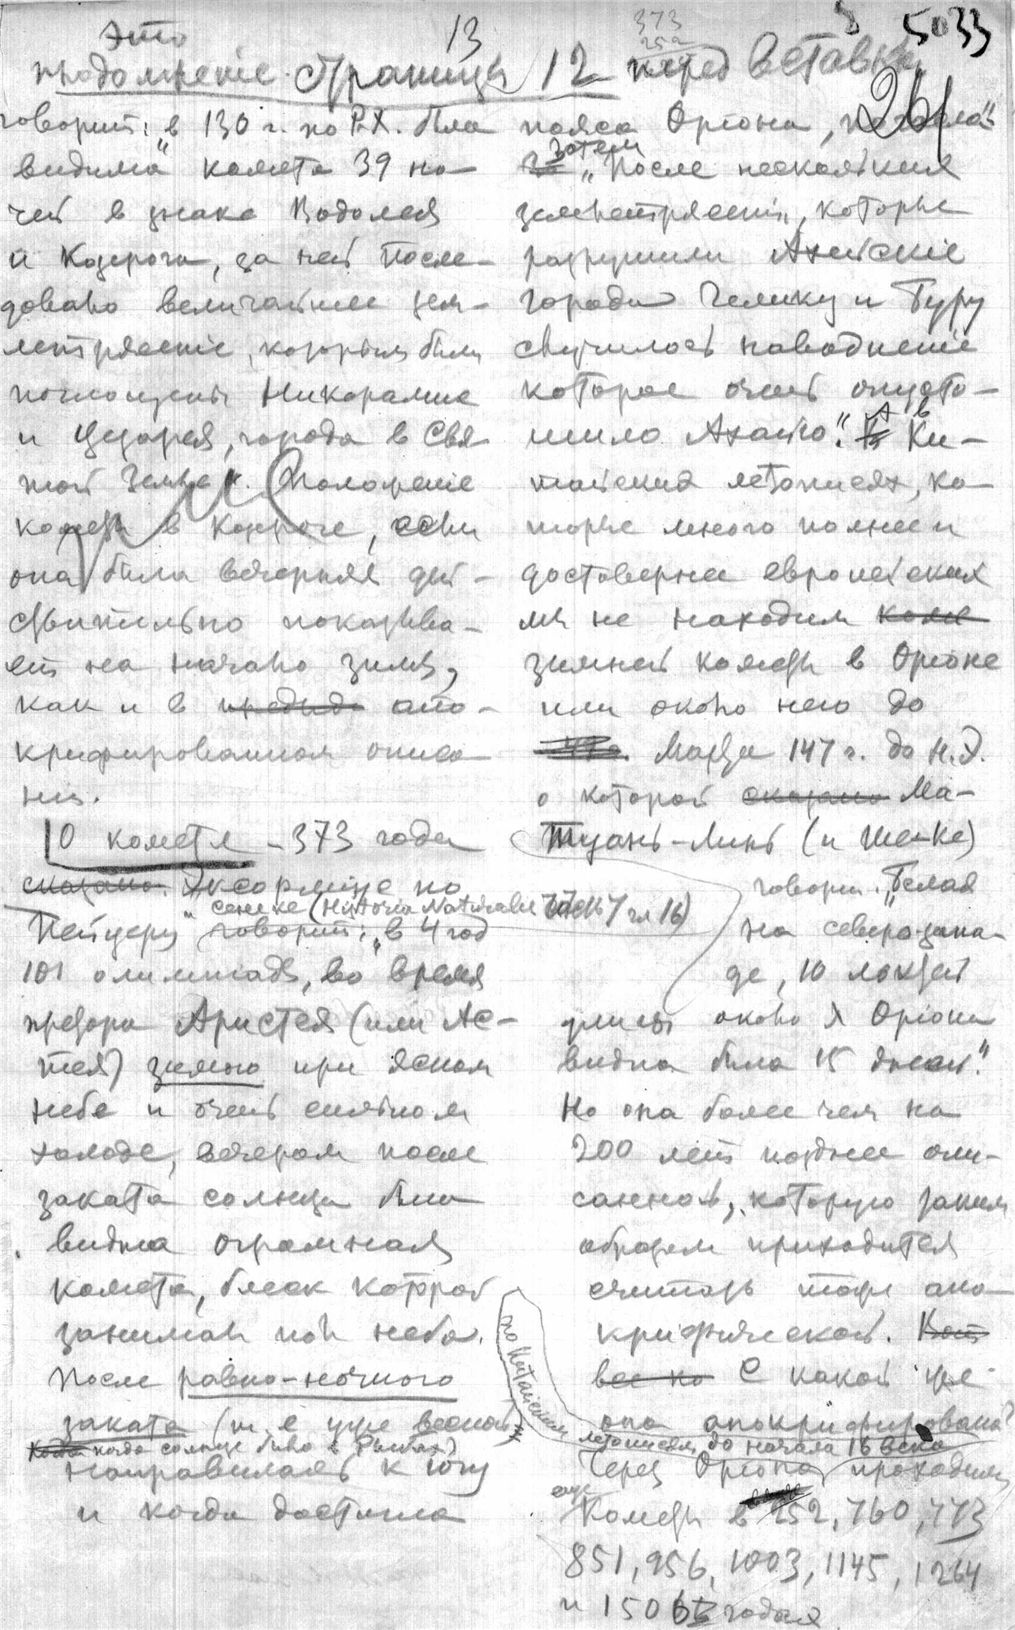 Это
13
373
252
5033
продолженіе страницы 12 перед вставкой
261
говорит: в 130 г. по Р.Х. была
видима" комета 39 но-
чей в знаке Водолея
и Козерога, за ней после-
довало величайшее зем-
летрясеніе, которым были
поглощены Никорамие
и Цезарея, города в Свя-
той Земле". Положеніе
кометы в Козероге, если
она была вечерняя дей-
ствительно показыва-
ет на начало зимы,
как и в предыд апо-
крифированном описа-
нии.
О комете -373 года
сказано. Эксормице по
сенеке (Historia Naturalis VII гл 16)
Пейцеру говорит: "в 4 год
101 олимпиады, во время
претора Аристея (или Ас-
тея) зимою при ясном
небе и очень сильном
холоде, вечером после
заката солнца была
видна огромная
комета, блеск которой
занимал пол неба.
После равно-ночного
заката (т. е. уже весной
когда солнце было в Рыбах)
направилась к югу
и когда достигла
пояса Ориона,
затем
"После нескольких
землетрясеній, которые
разрушили Ахейскіе
города Гелику и Буру
случилось наводненіе
которое очень опусто-
шило Ахайю". А в Ки-
тайских летописях, ко-
торые много полнее и
достовернее европейских
мы не находим коме
зимней кометы в Орионе
или около него до
Марта 147 г. до н.э.
о которой сказано Ма-
Туань-Линь (и Шеке)
говорит: "Белая
на северо-запа-
де, 10 локтей
длины около λ Ориона
видна была 15 дней."
Но она более чем на
200 лет позднее опи-
санной, которую таким
образом приходится
считать тоже апо-
крифической. Кот
все но С какой же
она апокрифирована?
по Китайским
летописям до начала 16 века
Через Орiона проходили
еще
Кометы в 252, 760, 773
851, 956, 1003, 1145, 1264
и 1506 годах